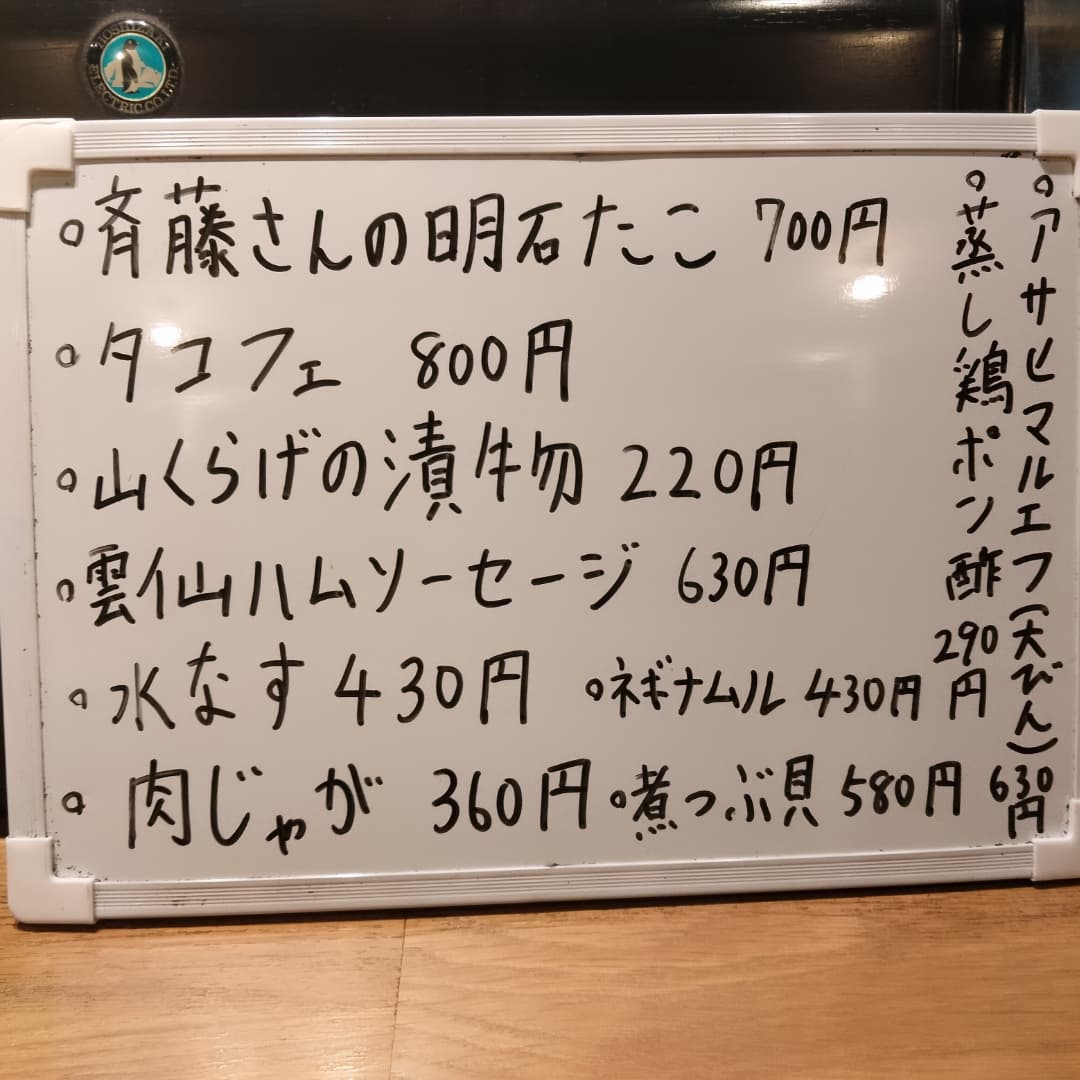 HOSHIZAKI ELECTRIC CO.,LTD.
。斉藤さんの明石たこ 700円
。タコフェ 800円
。山くらげの漬物 220円
。雲仙ハムソーセージ 630円
。水なす 430円 。ネギナムル 430円
。肉じゃが 360円 。煮つぶ貝 580円
。アサヒマルエフ(大びん) 630円
。蒸し鶏ポン酢 290円